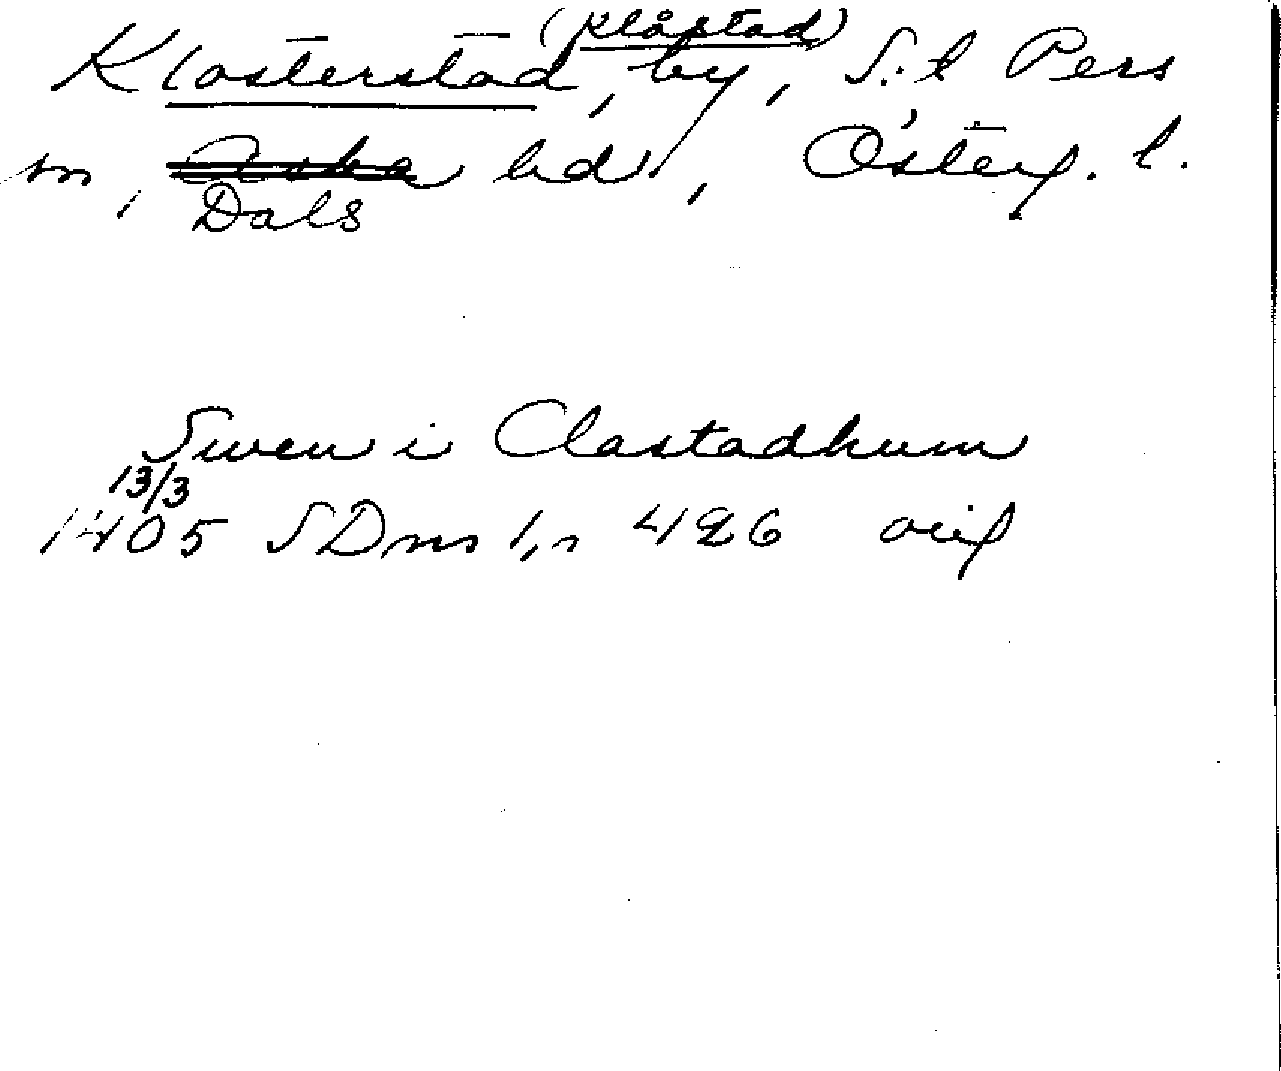 (Klåstad)
Klosterstad, by, S:t Pers
sn, Aska hd, Österg. l.
Dals
Swen i Clastadhum
13/3
1405 SDns 1, n 426 orig